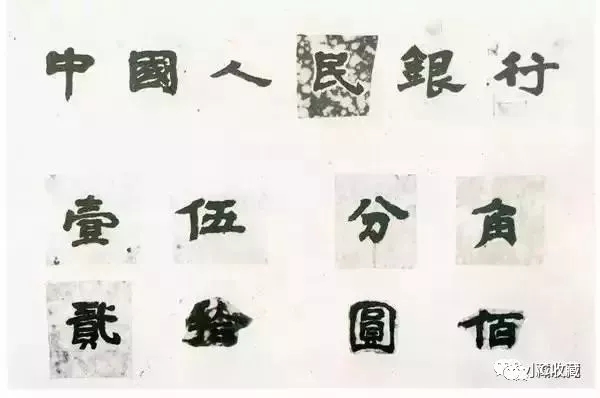 中國人民銀行
壹伍分角
貳拾圓佰
小糯收藏